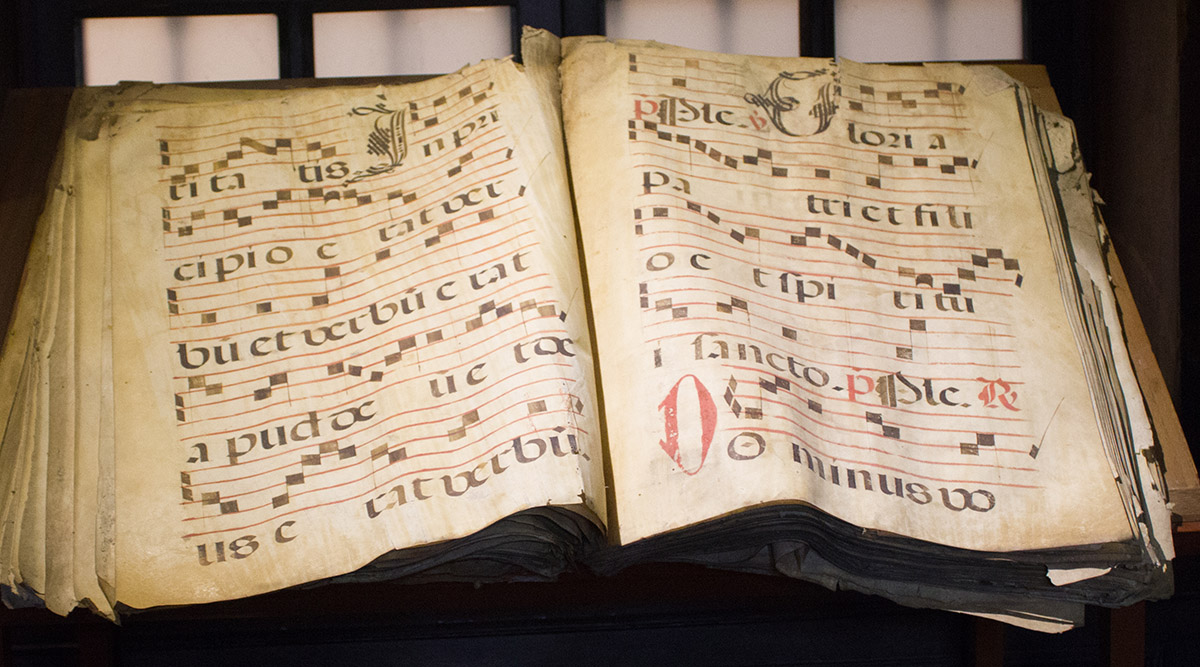 ri ta tis. I n pri
cipi o e rat ver
bũ et verbũ e rat
a pud de ũ e t de
us e rat verbũ.
Plc. G lori a
pa tri et fi li
o e t spi ri tu
i sancto. Plc. R
D O minus vo